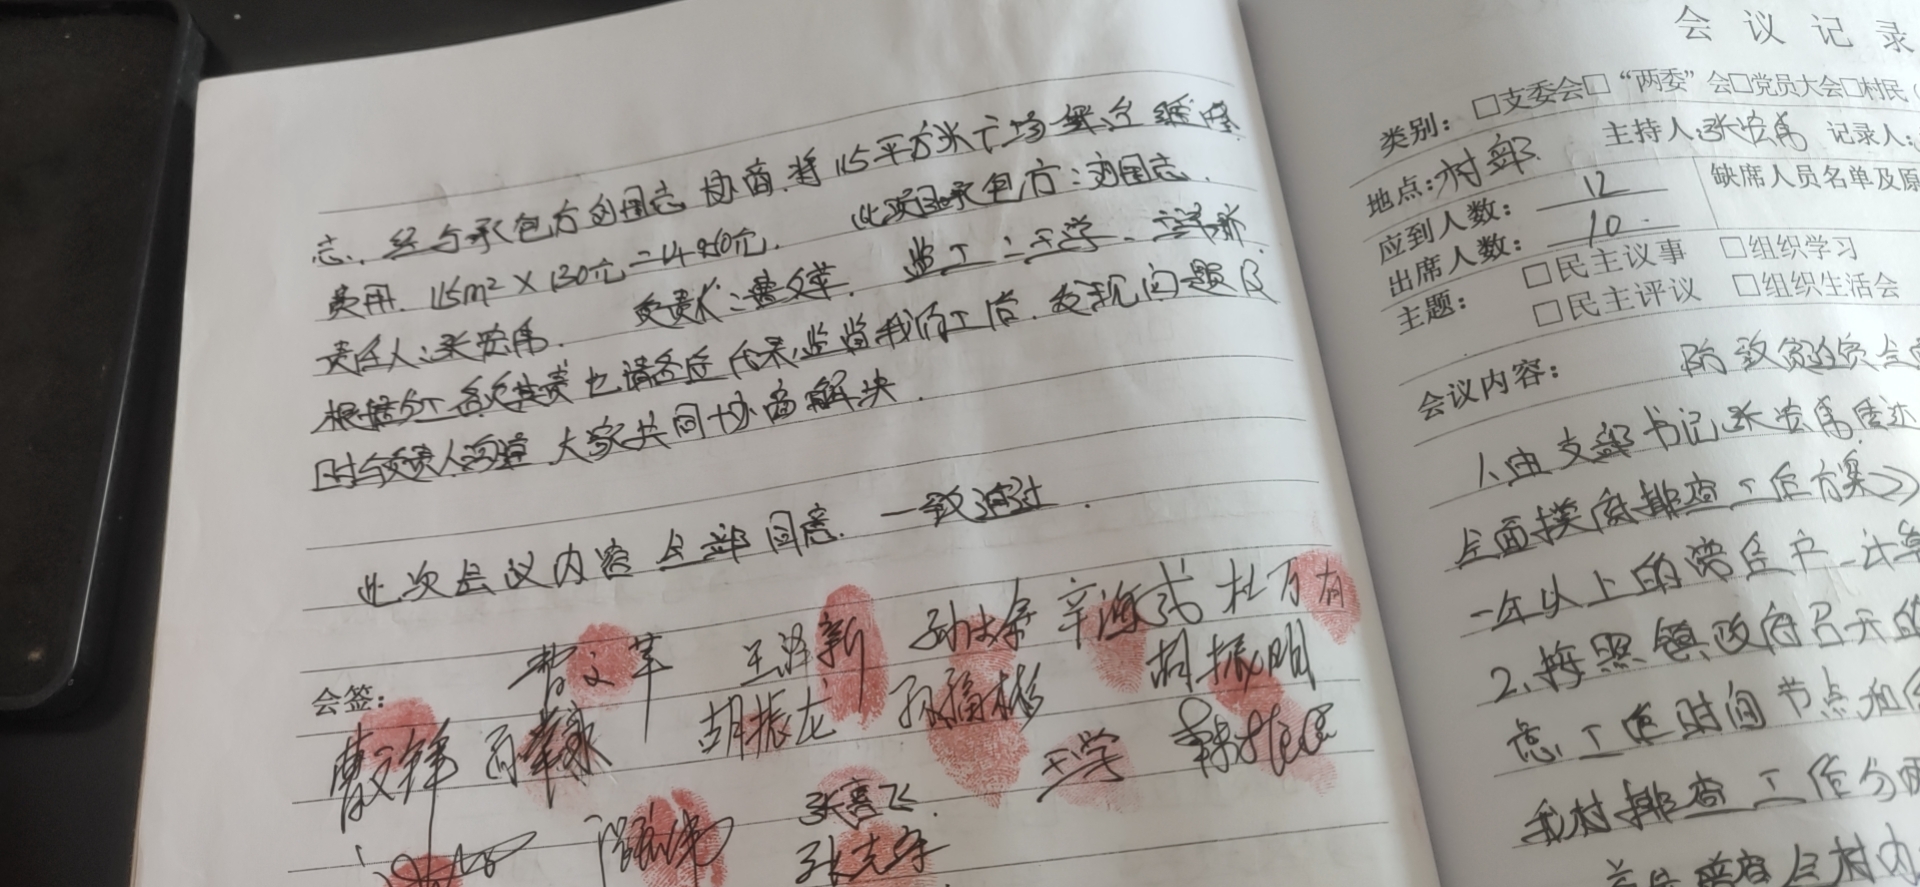 志，经与承包方刘国志协商，将115平方米广场舞台维修
费用，115m²×130元=14950元。此项目承包方：刘国志．
责任人：张宏伟．负责人：曹文革．监工：王学、王泽新．
根据分工各负其责也请各位代表监督我们工作，发现问题及
时与负责人沟通，大家共同协商解决．
此次会议内容全部同意．一致通过．
会签：
曹文革 王泽新 孙 辛 杜万有
曹文锋 胡振龙 孙福彬 胡振明
王学
张喜飞
张克宇
会议记录
类别：□支委会□“两委”会□党员大会□村民
地点：村部 主持人：张宏伟 记录人：
应到人数：12 缺席人员名单及原
出席人数：10
主题：□民主议事 □组织学习
□民主评议 □组织生活会
会议内容：防致贫返贫
1、由支部书记张宏伟传达
全面摸底排查工作方案》
一年以上的常住户
2、按照镇政府召开的
工作时间节点和
我村排查工作分两
全村内